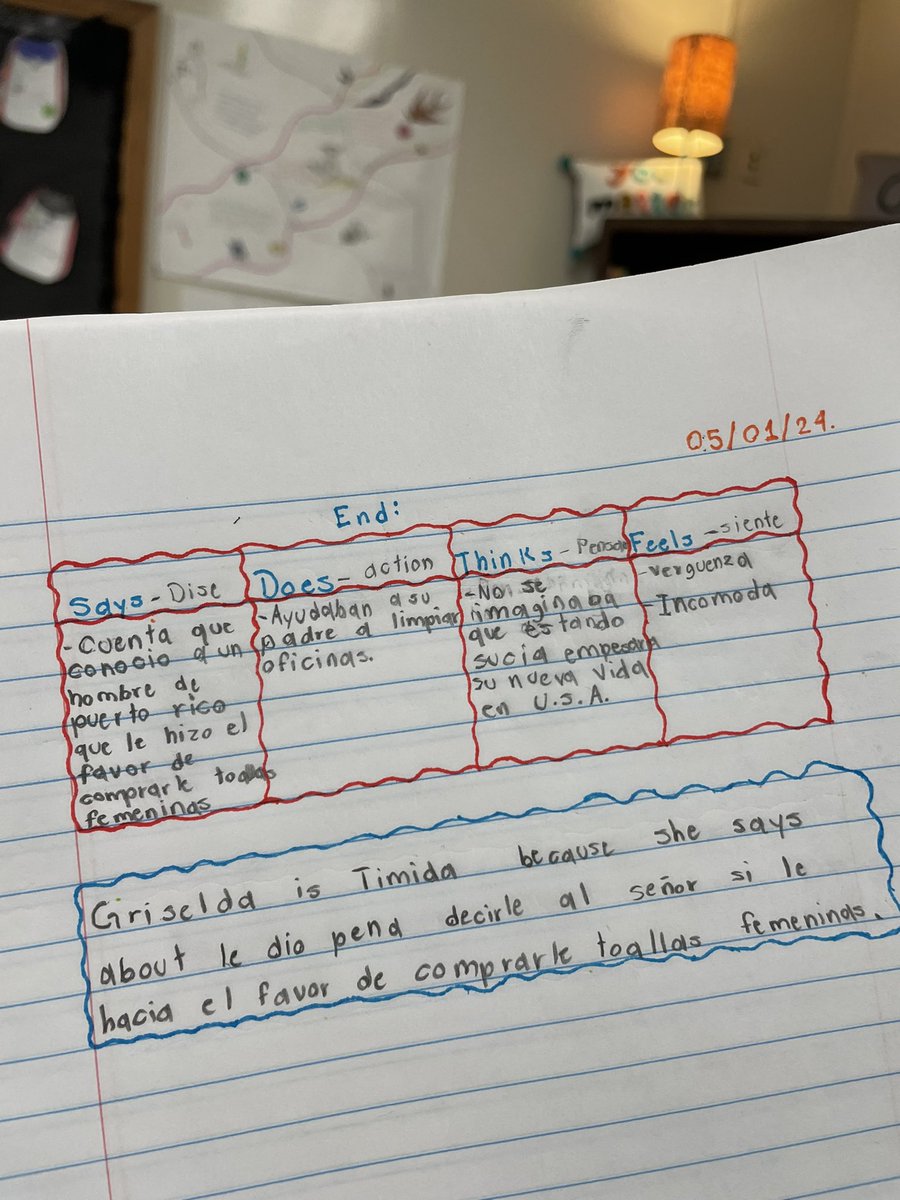 05/01/24.
End:
Says - Dise
- Cuenta que
conocio a un
hombre de
puerto rico
que le hizo el
favor de
comprarle toallas
femeninas
Does - action
- Ayudaban a su
padre a limpiar
oficinas.
Thinks - 
- No se
imaginaba
que estando
sucia empesaria
su nueva vida
en U.S.A.
Feels - siente
- verguenza
- Incomoda
Griselda is Timida because she says
about le dio pena decirle al señor si le
hacia el favor de comprarle toallas femeninas.